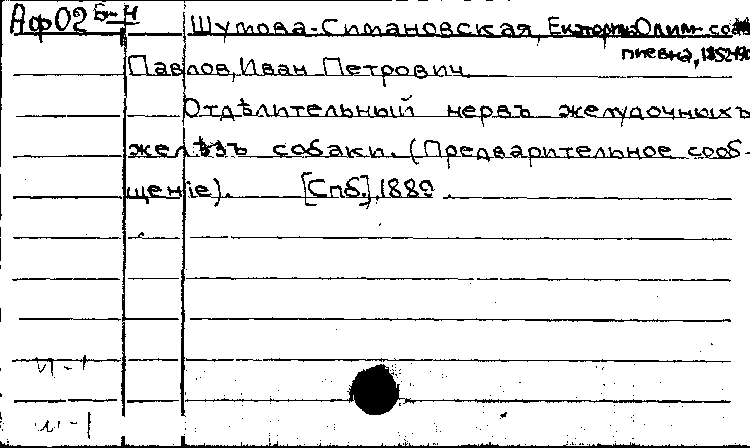 АФ02 Е-Ч
Шумова-Симановская, Екатерина Олим-
пиевна, 1852-190
Павлов, Иван Петрович.
Отдѣлительный нервъ желудочныхъ
желѣзъ собаки. (Предварительное сооб-
щеніе). [Спб.], 1889.
и-1
и-1